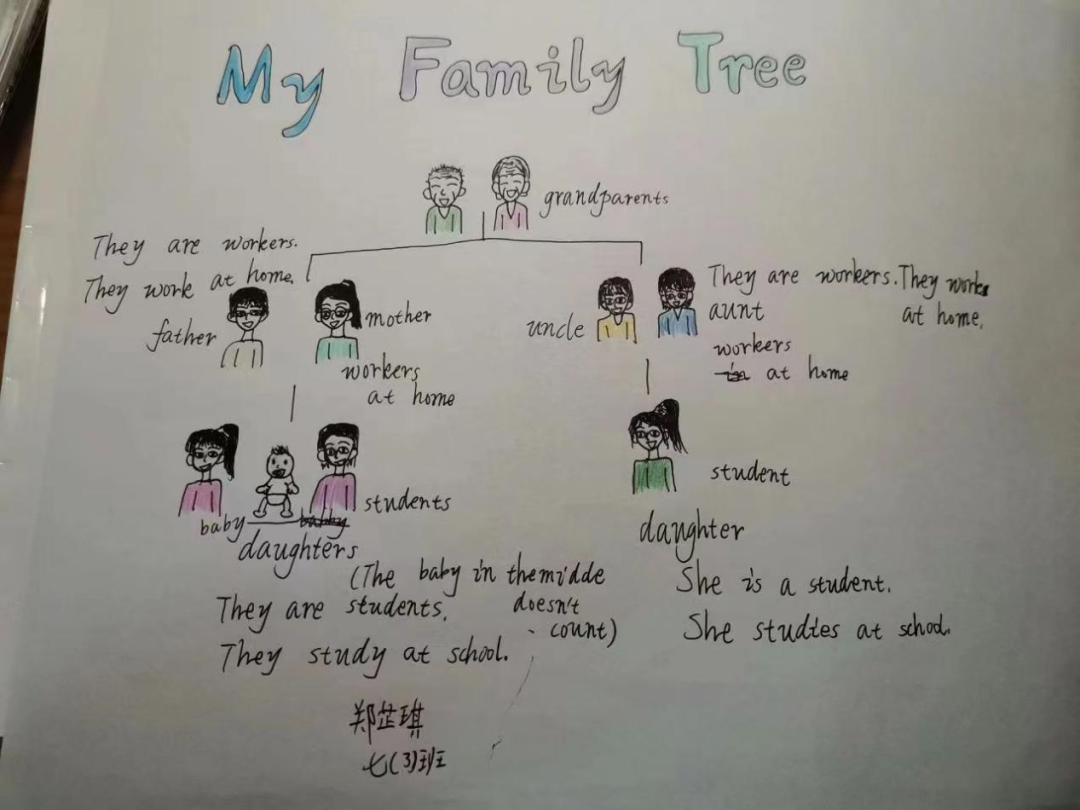 My Family Tree
grandparents
They are workers.
They work at home.
father
mother
workers
at home
uncle
They are workers. They work
at home.
aunt
workers
at home
baby
students
daughters
(The baby in the midde
doesn't
count)
They are students.
They study at school.
student
daughter
She is a student.
She studies at school.
郑芷琪
七(3)班